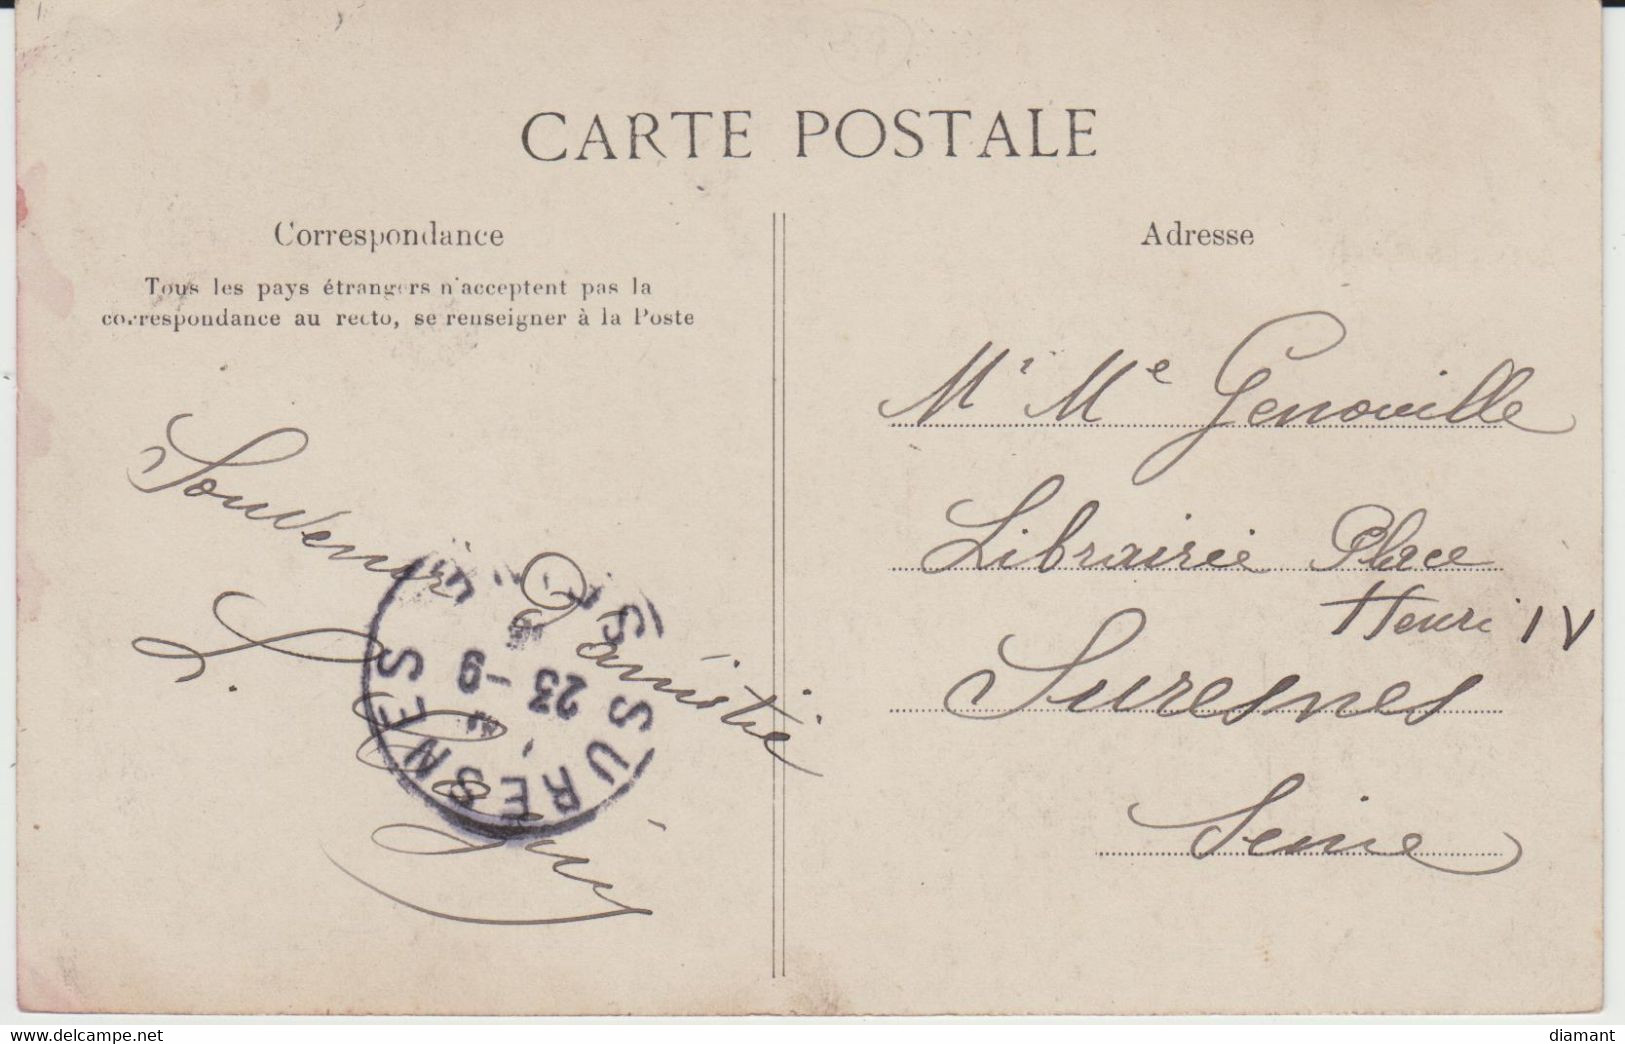 CARTE POSTALE
Correspondance
Tous les pays étrangers n'acceptent pas la
correspondance au recto, se renseigner à la Poste
Souvenir
D'amistié
L.
SURESNES
23 - 9
Adresse
Mr Me Genouille
Librairie Place
Henri IV
Suresnes
Seine
www.delcampe.net
diamant